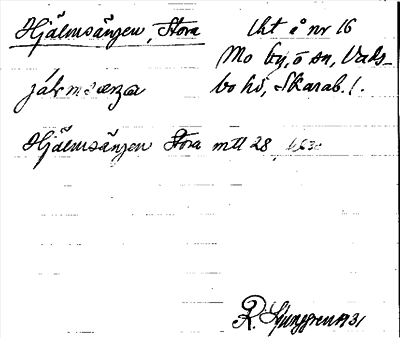 Hjälmsängen, Stora
Utt å nr 16
Mo by, ö sn, Vads-
bo hd, Skarab. l.
Hjälmsängen Stora mtl 28
R. Ljunggren 1931